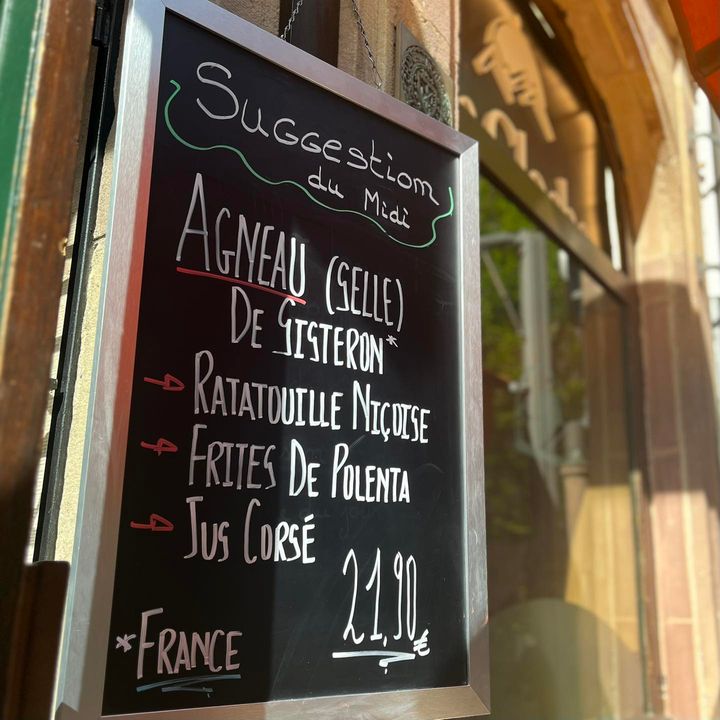 Suggestion
du Midi
AGNEAU (SELLE)
DE SISTERON*
RATATOUILLE NIÇOISE
FRITES DE POLENTA
JUS CORSÉ
21,90 €
*FRANCE